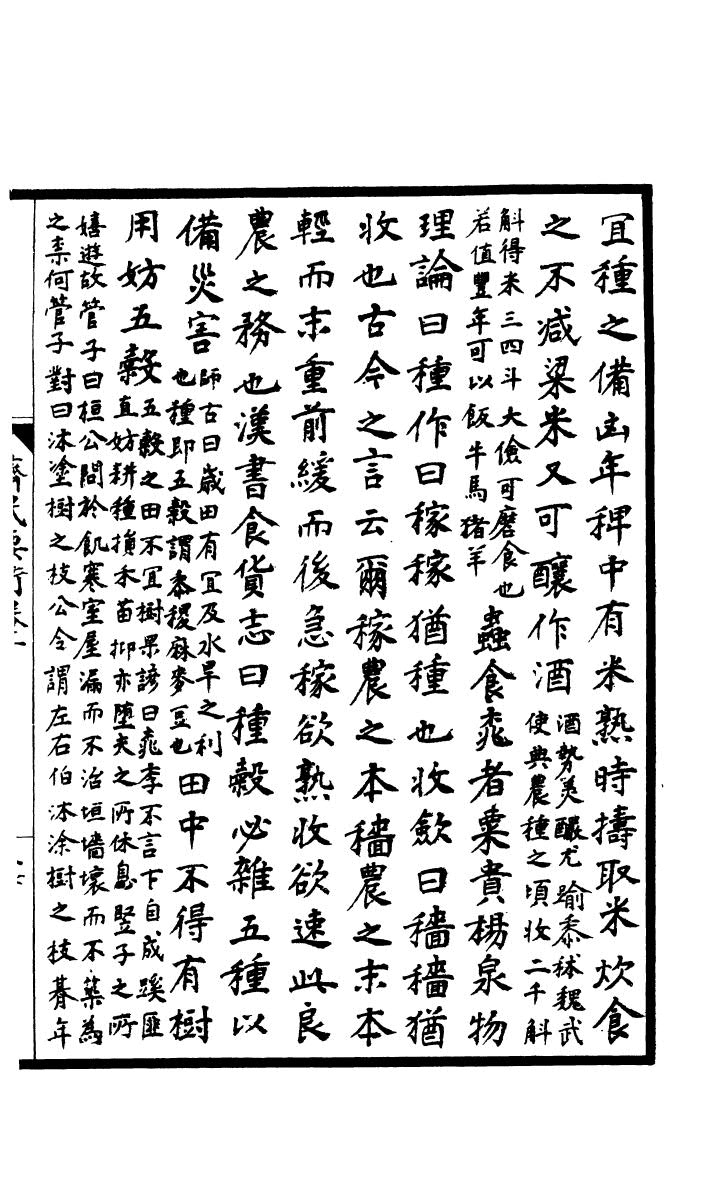 宜種之備凶年稗中有米熟時擣取米炊食
之不减粱米又可釀作酒酒勢美釀尤踰黍秫魏武
使典農種之頃收二千斛
斛得米三四斗大儉可磨食也
若值豐年可以飯牛馬猪羊蟲食桃者粟貴楊泉物
理論曰種作曰稼稼猶種也收歛曰穡穡猶
收也古今之言云爾稼農之本穡農之末本
輕而末重前緩而後急稼欲熟收欲速此良
農之務也漢書食貨志曰種穀必雜五種以
備災害師古曰歲田有宜及水旱之利
也種即五穀謂黍稷麻麥豆也田中不得有樹
用妨五穀五穀之田不宜樹果諺曰桃李不言下自成蹊匪
直妨耕種損禾苗抑亦墮夫之所休息豎子之所
嬉遊故管子曰桓公問於飢寒室屋漏而不治垣墻壞而不築為
之柰何管子對曰沐塗樹之枝公令謂左右伯沐涂樹之枝朞年
齊民要術卷一